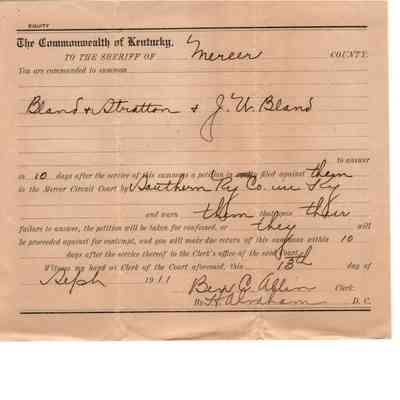 EQUITY
The Commonwealth of Kentucky,
TO THE SHERIFF OF Mercer COUNTY:
You are commanded to summon
Bland & Stratton & J. W. Bland
to answer
in 10 days after the service of this summons a petition in equity filed against them
in the Mercer Circuit Court by Southern Ry Co. in Ky
and warn them that upon their
failure to answer, the petition will be taken for confessed, or they will
be proceeded against for contempt, and you will make due return of this summons within 10
days after the service thereof to the Clerk's office of the said Court.
Witness my hand as Clerk of the Court aforesaid, this 13th day of
Sept 1911 Ben C. Allin Clerk
By H. D. C.